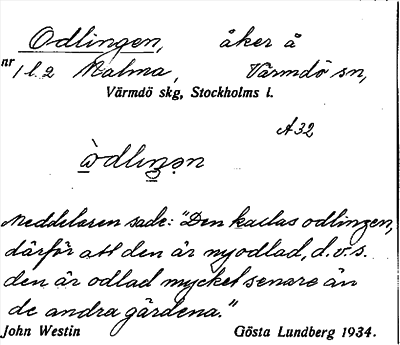 Odlingen, åker å
nr 1 l. 2 Malma, Värmdö sn,
Värmdö skg, Stockholms l.
A 32
òdlinən
Meddelaren sade: "Den kallas odlingen,
därför att den är nyodlad, d.v.s.
den är odlad mycket senare än
de andra gärdena."
John Westin Gösta Lundberg 1934.